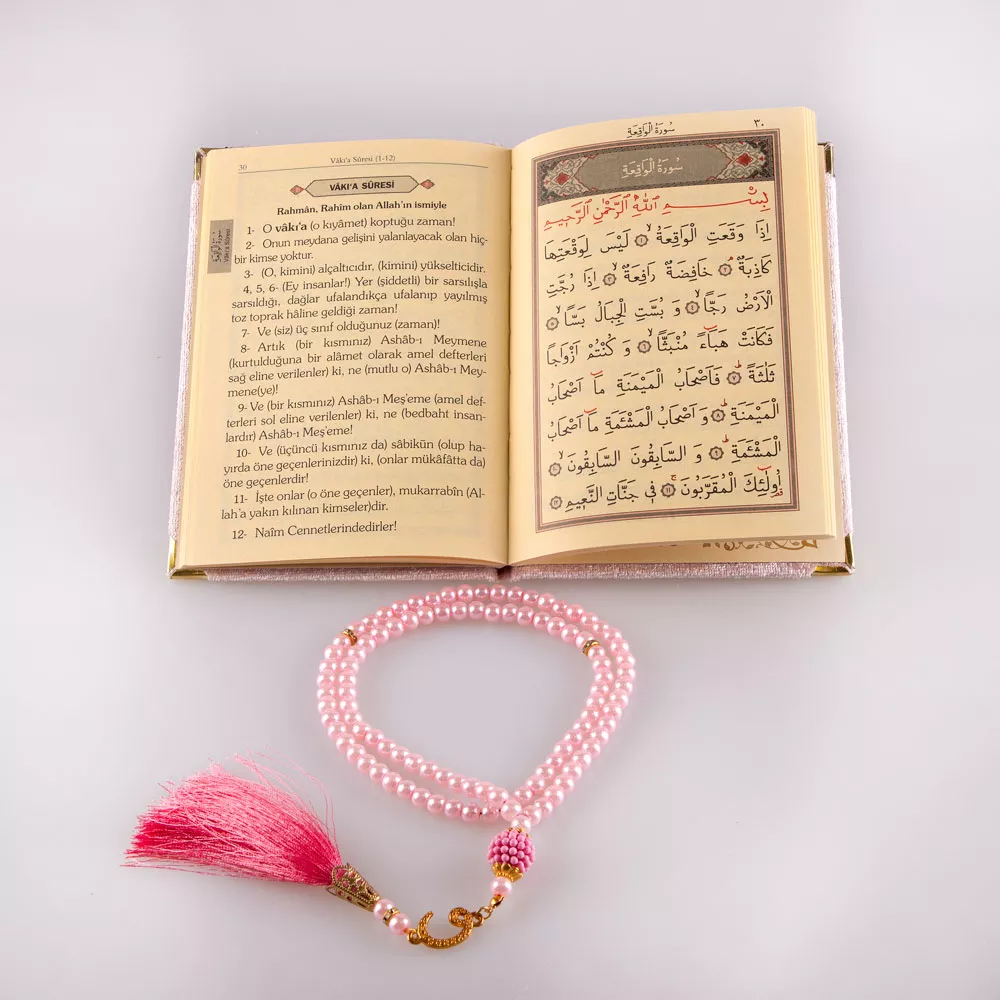 30
Vâkı'a Sûresi (1-12)
VÂKI'A SÛRESİ
Rahmân, Rahîm olan Allah'ın ismiyle
1- O vâkı'a (o kıyâmet) koptuğu zaman!
2- Onun meydana gelişini yalanlayacak olan hiç-
bir kimse yoktur.
3- (O, kimini) alçaltıcıdır, (kimini) yükselticidir.
4, 5, 6- (Ey insanlar!) Yer (şiddetli) bir sarsılışla
sarsıldığı, dağlar ufalandıkça ufalanıp yayılmış
toz toprak hâline geldiği zaman!
7- Ve (siz) üç sınıf olduğunuz (zaman)!
8- Artık (bir kısmınız) Ashâb-ı Meymene
(kurtulduğuna bir alâmet olarak amel defterleri
sağ eline verilenler) ki, ne (mutlu o) Ashâb-ı Mey-
mene(ye)!
9- Ve (bir kısmınız) Ashâb-ı Meş'eme (amel def-
terleri sol eline verilenler) ki, ne (bedbaht insan-
lardır) Ashâb-ı Meş'eme!
10- Ve (üçüncü kısmınız da) sâbikūn (olup ha-
yırda öne geçenlerinizdir) ki, (onlar mükâfâtta da)
öne geçenlerdir!
11- İşte onlar (o öne geçenler), mukarrabîn (Al-
lah'a yakın kılınan kimseler)dir.
12- Naîm Cennetlerindedirler!
سورة الواقعة
Vâkı'a Sûresi
سُورَةُ الْوَاقِعَةِ
٣٠
سُورَةُ الْوَاقِعَةِ
بِسْمِ اللّٰهِ الرَّحْمٰنِ الرَّحِيمِ
اِذَا وَقَعَتِ الْوَاقِعَةُ ۙ ١ لَيْسَ لِوَقْعَتِهَا
كَاذِبَةٌ ۘ ٢ خَافِضَةٌ رَافِعَةٌ ۙ ٣ اِذَا رُجَّتِ
الْاَرْضُ رَجًّا ۙ ٤ وَ بُسَّتِ الْجِبَالُ بَسًّا ۙ ٥
فَكَانَتْ هَبَٓاءً مُنْبَثًّا ۙ ٦ وَ كُنْتُمْ اَزْوَاجًا
ثَلٰثَةً ۜ ٧ فَاَصْحَابُ الْمَيْمَنَةِ مَٓا اَصْحَابُ
الْمَيْمَنَةِ ۜ ٨ وَ اَصْحَابُ الْمَشْـَٔمَةِ مَٓا اَصْحَابُ
الْمَشْـَٔمَةِ ۜ ٩ وَ السَّابِقُونَ السَّابِقُونَ ۙ ١٠
اُو۬لٰٓئِكَ الْمُقَرَّبُونَ ۚ ١١ ف۪ي جَنَّاتِ النَّع۪يمِ ١٢